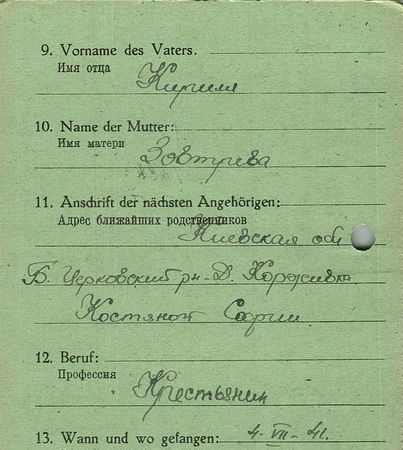 9. Vorname des Vaters.
Имя отца
Кирилл
10. Name der Mutter:
Имя матери
Зовтрева
11. Anschrift der nächsten Angehörigen:
Адрес ближайших родственников
Киевская обл
Б. Церковский рн Д. Корживка
Костяной Софии
12. Beruf:
Профессия
Крестьянин
13. Wann und wo gefangen: 4-VII-41.